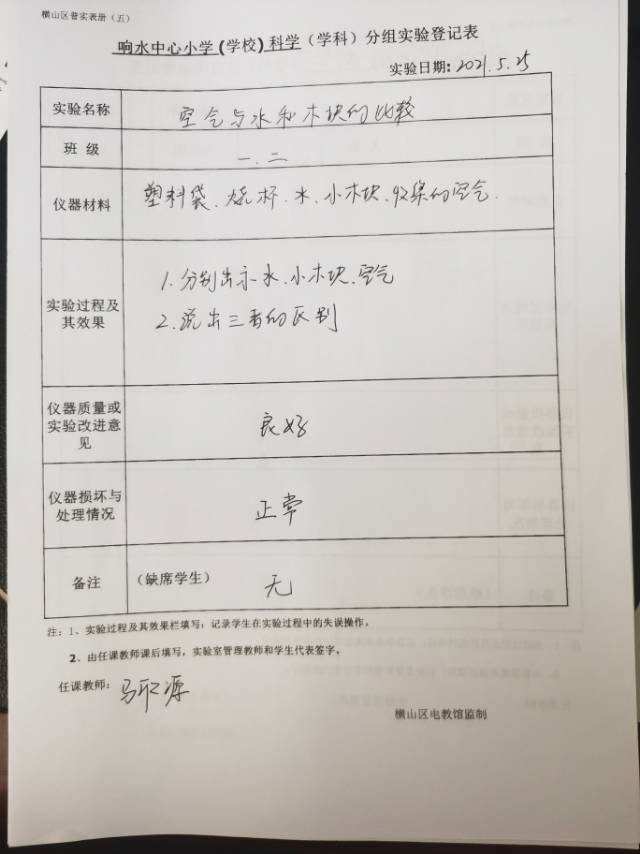 横山区普实表册（五）
响水中心小学(学校)科学（学科）分组实验登记表
实验日期：2021.5.25
实验名称 空气与水和木块的比较
班 级 一、二
仪器材料 塑料袋、烧杯、水、小木块、收集的空气.
实验过程及
其效果
1.分别出示水、小木块、空气
2.说出三者的区别
仪器质量或
实验改进意
见
良好
仪器损坏与
处理情况
正常
备注 （缺席学生） 无
注：1、实验过程及其效果栏填写：记录学生在实验过程中的失误操作。
2、由任课教师课后填写，实验室管理教师和学生代表签字。
任课教师：马 源
横山区电教馆监制